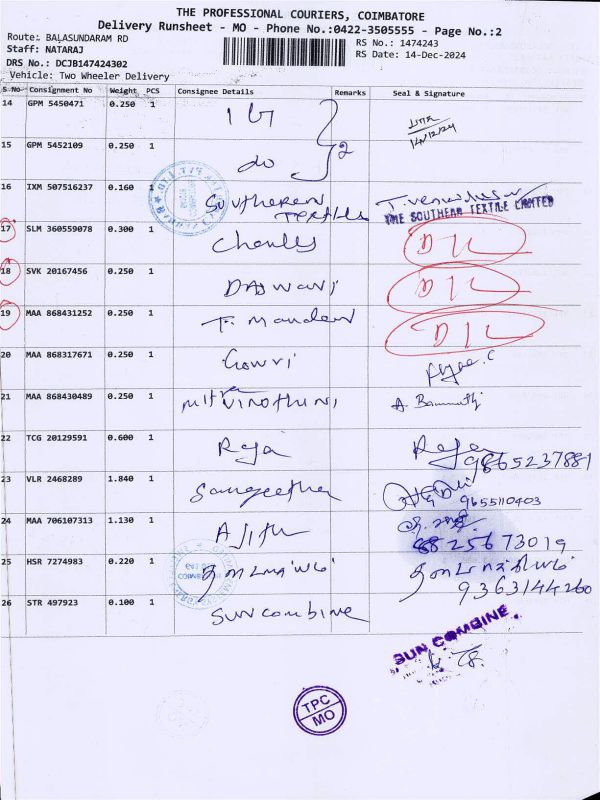 THE PROFESSIONAL COURIERS, COIMBATORE
Delivery Runsheet - MO - Phone No.:0422-3505555 - Page No.:2
Route: BALASUNDARAM RD
RS No.: 1474243
Staff: NATARAJ
RS Date: 14-Dec-2024
DRS No.: DCJB147424302
Vehicle: Two Wheeler Delivery
S No Consignment No Weight PCS Consignee Details Remarks Seal & Signature
14 GPM 5450471 0.250 1
14/12/24
15 GPM 5452109 0.250 1 do 2
16 IXM 507516237 0.160 1 Southeren Textiles
THE SOUTHERN TEXTILE LIMITED
17 SLM 360559078 0.300 1 Charles D/L
18 SVK 20167456 0.250 1 Daswani D/L
19 MAA 868431252 0.250 1 D/L
20 MAA 868317671 0.250 1 Gowri
21 MAA 868430489 0.250 1
22 TCG 20129591 0.600 1 Raja Raja
9865237881
23 VLR 2468289 1.840 1 Sangeetha
9655110403
24 MAA 706107313 1.130 1 Ajith
8825673019
25 HSR 7274983 0.220 1
9363144260
26 STR 497923 0.100 1 SUN combine
SUN COMBINE
TPC
MO